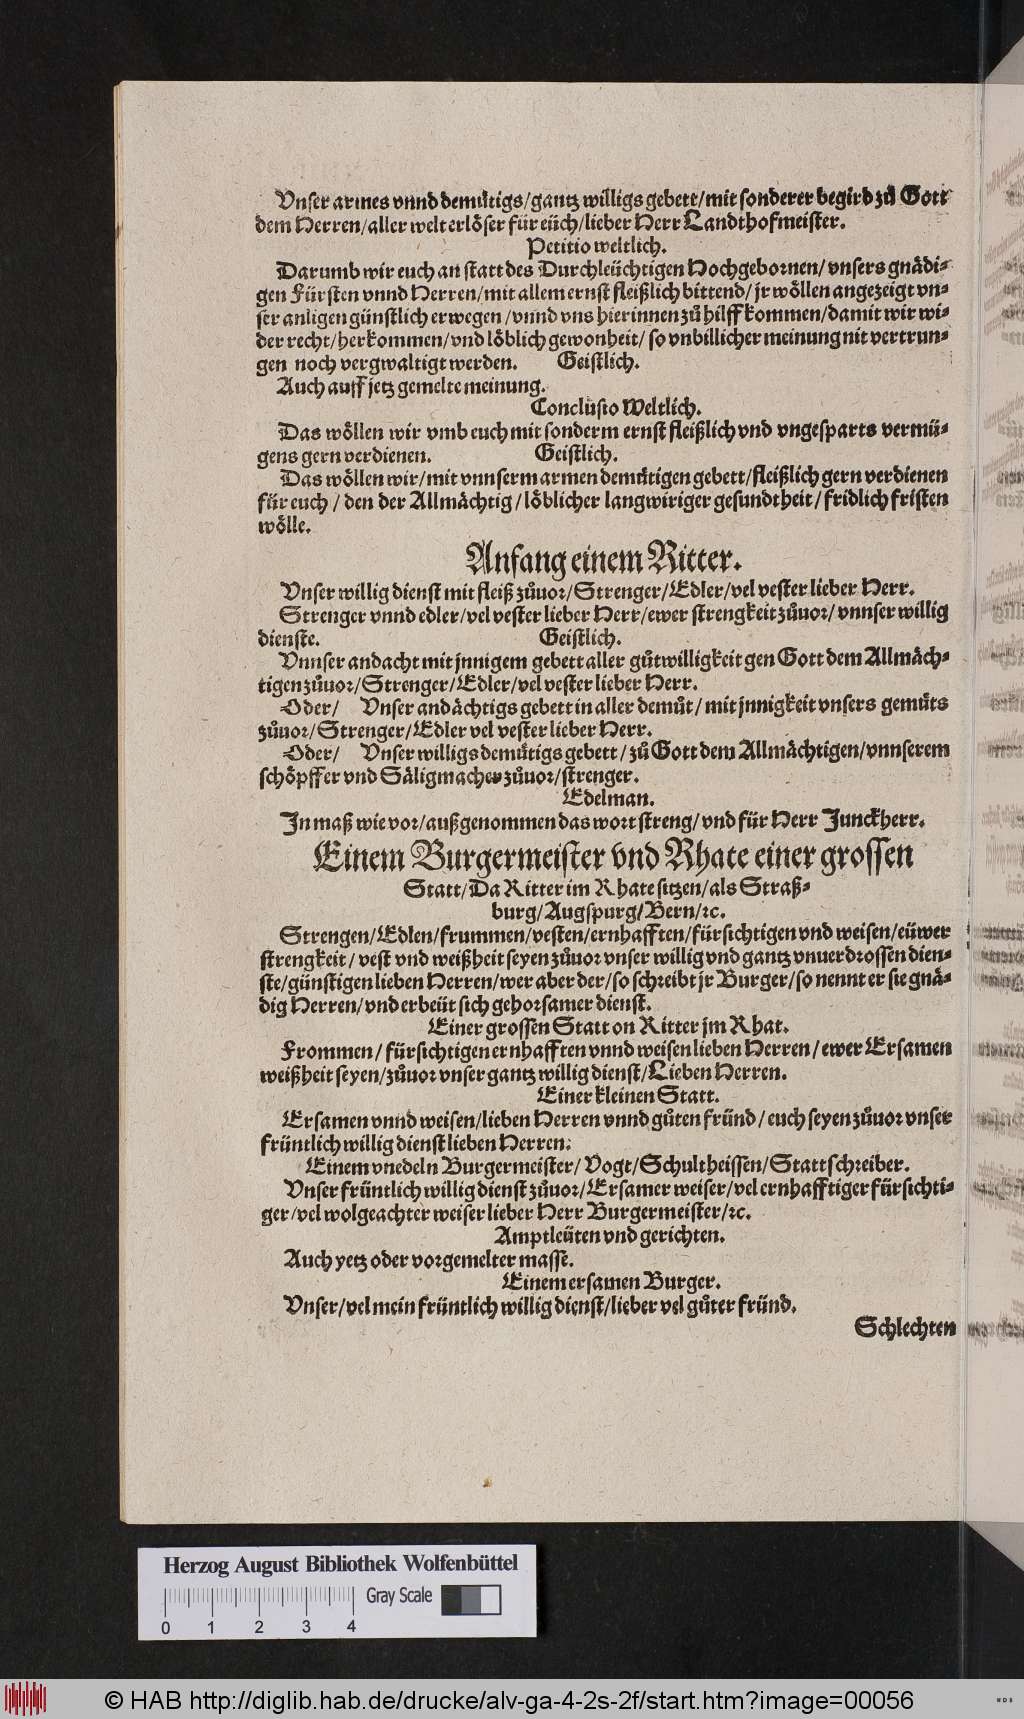 Vnser armes vnnd demuͤtigs/gantz willigs gebett/mit sonderer begird zů Gott
dem Herren/aller welt erlöser für eüch/lieber Herr Landthofmeister.
Petitio weltlich.
Darumb wir euch an statt des Durchleüchtigen Hochgebornen/vnsers gnädi-
gen Fürsten vnnd Herren/mit allem ernst fleißlich bittend/jr wöllen angezeigt vn-
ser anligen günstlich erwegen/vnnd vns hierinnen zů hilff kommen/damit wir wi-
der recht/herkommen/vnd löblich gewonheit/so vnbillicher meinung nit vertrun-
gen noch vergwaltigt werden. Geistlich.
Auch auff jetz gemelte meinung.
Conclusio Weltlich.
Das wöllen wir vmb euch mit sonderm ernst fleißlich vnd vngesparts vermü-
gens gern verdienen. Geistlich.
Das wöllen wir/mit vnnserm armen demuͤtigen gebett/fleißlich gern verdienen
für euch/den der Allmächtig/löblicher langwiriger gesundtheit/fridlich fristen
wölle.
Anfang einem Ritter.
Vnser willig dienst mit fleiß zůuor/Strenger/Edler/vel vester lieber Herr.
Strenger vnnd edler/vel vester lieber Herr/ewer strengkeit zůuor/vnnser willig
dienste. Geistlich.
Vnnser andacht mit jnnigem gebett aller gůtwilligkeit gen Gott dem Allmäch-
tigen zůuor/Strenger/Edler/vel vester lieber Herr.
Oder/ Vnser andächtigs gebett in aller demůt/mit jnnigkeit vnsers gemuͤts
zůuor/Strenger/Edler vel vester lieber Herr.
Oder/ Vnser willigs demuͤtigs gebett/zů Gott dem Allmächtigen/vnnserem
schöpffer vnd Säligmacher zůuor/strenger.
Edelman.
In maß wie vor/außgenommen das wort streng/vnd für Herr Junckherr.
Einem Burgermeister vnd Rhate einer grossen
Statt/Da Ritter im Rhate sitzen/als Straß-
burg/Augspurg/Bern/ꝛc.
Strengen/Edlen/frummen/vesten/ernhafften/fürsichtigen vnd weisen/eüwer
strengkeit/vest vnd weißheit seyen zůuor vnser willig vnd gantz vnuerdrossen dien-
ste/günstigen lieben Herren/wer aber der/so schreibt jr Burger/so nennt er sie gnä-
dig Herren/vnd erbeüt sich gehorsamer dienst.
Einer grossen Statt on Ritter jm Rhat.
Frommen/fürsichtigen ernhafften vnnd weisen lieben Herren/ewer Ersamen
weißheit seyen/zůuor vnser gantz willig dienst/Lieben Herren.
Einer kleinen Statt.
Ersamen vnnd weisen/lieben Herren vnnd gůten fründ/euch seyen zůuor vnser
früntlich willig dienst lieben Herren.
Einem vnedeln Burgermeister/Vogt/Schultheissen/Stattschreiber.
Vnser früntlich willig dienst zůuor/Ersamer weiser/vel ernhafftiger fürsichti-
ger/vel wolgeachter weiser lieber Herr Burgermeister/ꝛc.
Amptleüten vnd gerichten.
Auch yetz oder vorgemelter masse.
Einem ersamen Burger.
Vnser/vel mein früntlich willig dienst/lieber vel gůter fründ.
Schlechten
Herzog August Bibliothek Wolfenbüttel
Gray Scale
0 1 2 3 4
© HAB http://diglib.hab.de/drucke/alv-ga-4-2s-2f/start.htm?image=00056